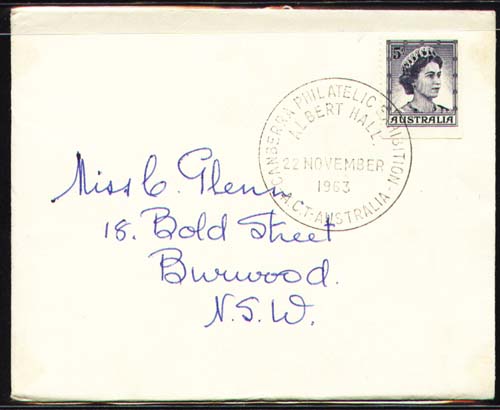 5D
AUSTRALIA
CANBERRA PHILATELIC EXHIBITION
ALBERT HALL.
22 NOVEMBER
1963
A.C.T-AUSTRALIA-
Miss C. Glenn
18. Bold Street
Burwood.
N.S.W.